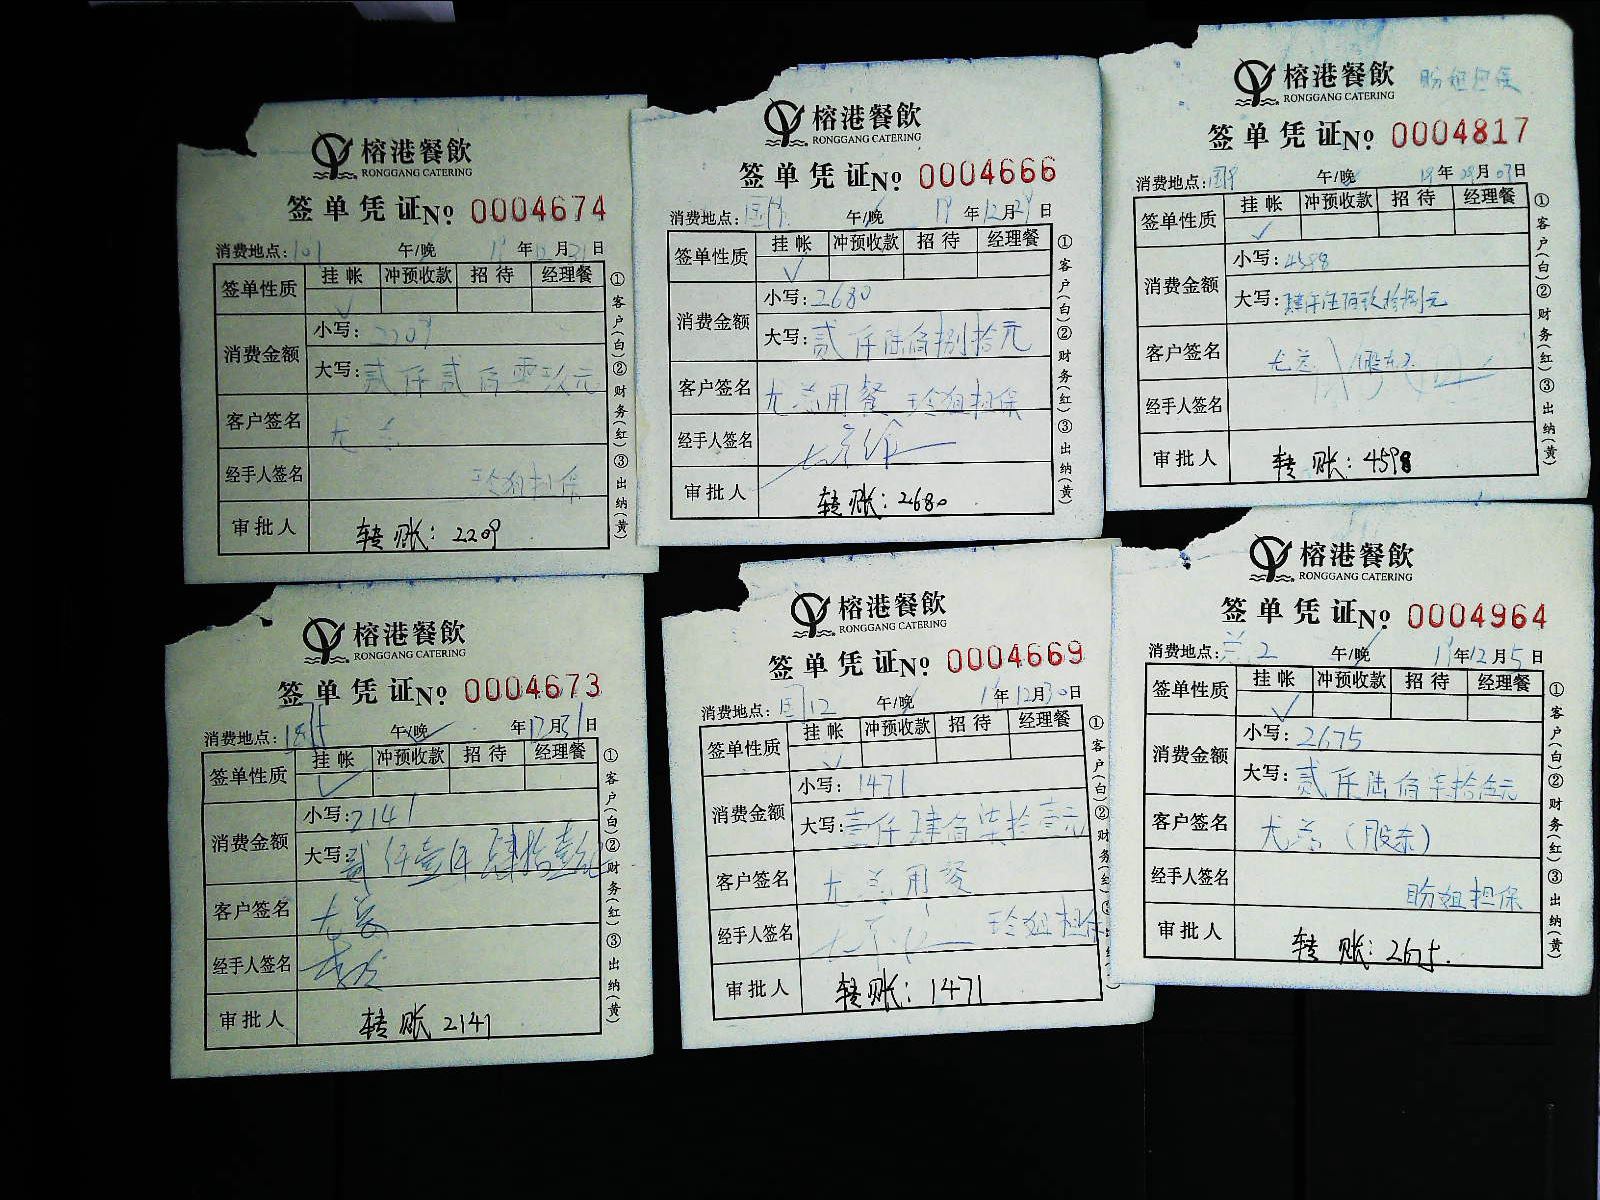 榕港餐飲
RONGGANG CATERING
签单凭证No 0004674
消费地点: 101 午/晚 19年12月31日
签单性质 挂帐 冲预收款 招待 经理餐
消费金额
小写: 2209
大写: 贰仟贰佰零玖元
客户签名 尤总
经手人签名 玲姐担保
审批人 转账: 2209
①客户(白)②财务(红)③出纳(黄)
榕港餐飲
RONGGANG CATERING
签单凭证No 0004666
消费地点: 午/晚 19年12月29日
签单性质 挂帐 冲预收款 招待 经理餐
消费金额
小写: 2680
大写: 贰仟陆佰捌拾元
客户签名 尤总用餐 玲姐担保
经手人签名
审批人 转账: 2680
①客户(白)②财务(红)③出纳(黄)
榕港餐飲
RONGGANG CATERING
盼姐担保
签单凭证No 0004817
消费地点: 午/晚 19年 月 日
签单性质 挂帐 冲预收款 招待 经理餐
消费金额
小写: 4598
大写: 肆仟伍佰玖拾捌元
客户签名 尤总
经手人签名
审批人 转账: 4598
①客户(白)②财务(红)③出纳(黄)
榕港餐飲
RONGGANG CATERING
签单凭证No 0004673
消费地点: 午/晚 年12月31日
签单性质 挂帐 冲预收款 招待 经理餐
消费金额
小写: 2141
大写: 贰仟壹佰肆拾壹元
客户签名 尤总
经手人签名
审批人 转账 2141
①客户(白)②财务(红)③出纳(黄)
榕港餐飲
RONGGANG CATERING
签单凭证No 0004669
消费地点: 国12 午/晚 19年12月30日
签单性质 挂帐 冲预收款 招待 经理餐
消费金额
小写: 1471
大写: 壹仟肆佰柒拾壹元
客户签名 尤总用餐
经手人签名 玲姐担保
审批人 转账: 1471
①客户(白)②财务(红
榕港餐飲
RONGGANG CATERING
签单凭证No 0004964
消费地点: 兰2 午/晚 19年12月5日
签单性质 挂帐 冲预收款 招待 经理餐
消费金额
小写: 2675
大写: 贰仟陆佰柒拾伍元
客户签名 尤总(股东)
经手人签名 盼姐担保
审批人 转账: 2675.
①客户(白)②财务(红)③出纳(黄)